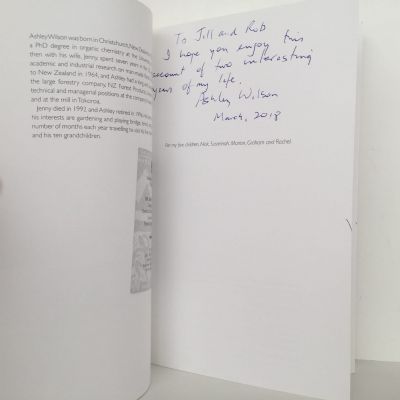 Ashley Wilson was born in Christchurch, New Zealand
a PhD degree in organic chemistry at the
then with his wife, Jenny spent seven years in the
academic and industrial research on man-made
to New Zealand in 1964, and Ashley had a long
the large forestry company, NZ Forest Products
technical and managerial positions at the company
and at the mill in Tokoroa.
Jenny died in 1992 and Ashley retired in
his interests are gardening and playing bridge,
number of months each year travelling
and his ten grandchildren.
To Jill and Rob
I hope you enjoy this
account of two interesting
years of my life.
Ashley Wilson
March, 2018
For my five children, Nick, Susannah, Marion, Graham and Rachel